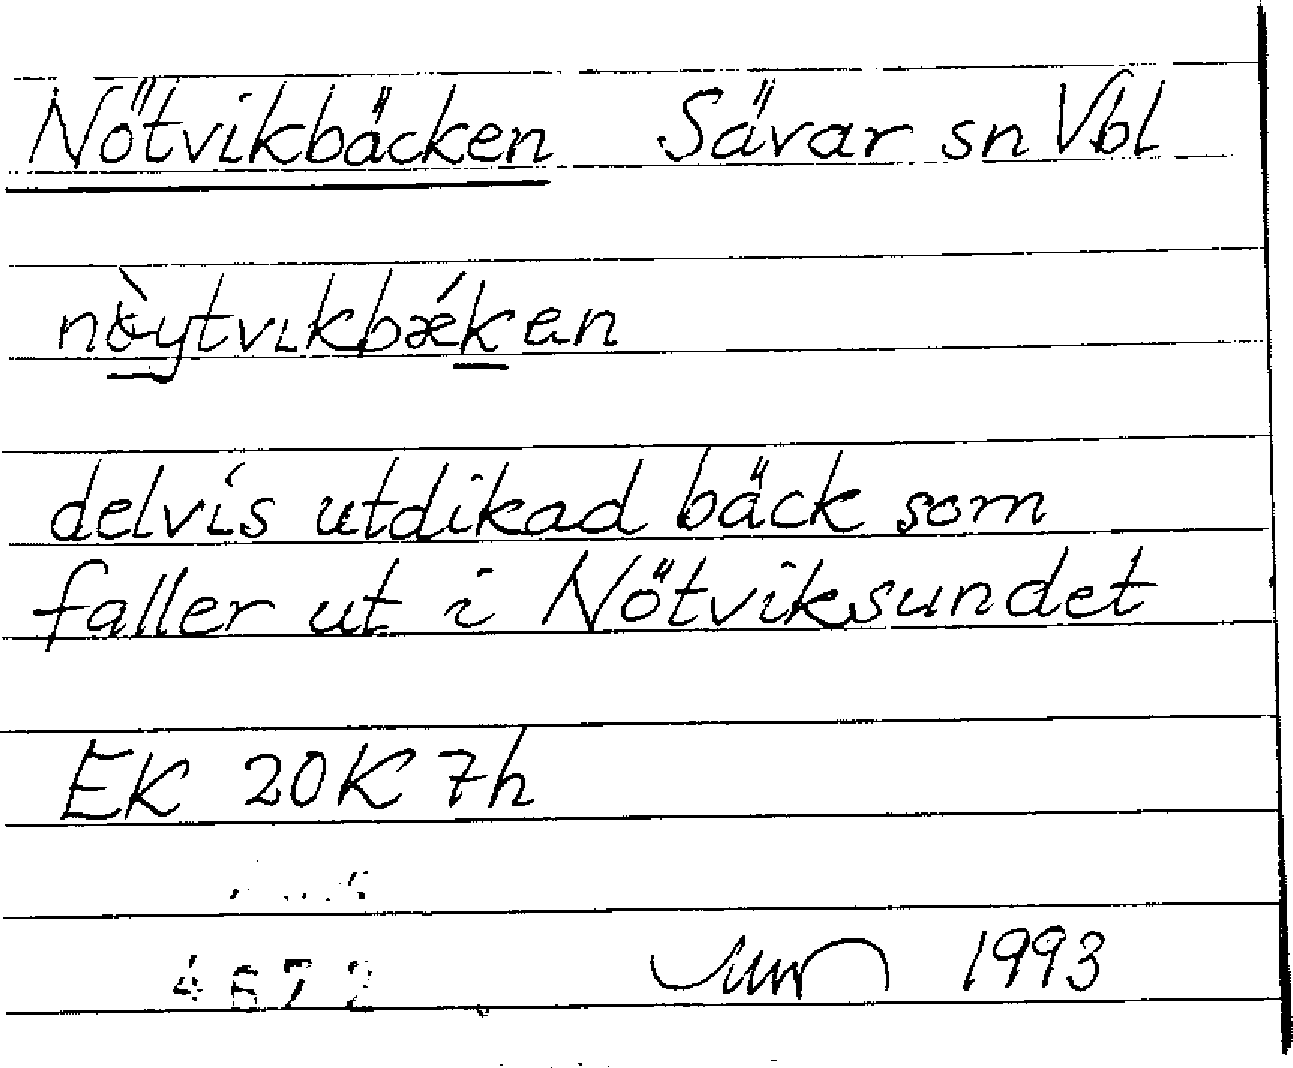 Nötvikbäcken Sävar sn Vbl
nɵ̀ytvɩkbǽken
delvis utdikad bäck som
faller ut i Nötviksundet
EK 20K 7h
4672
1993